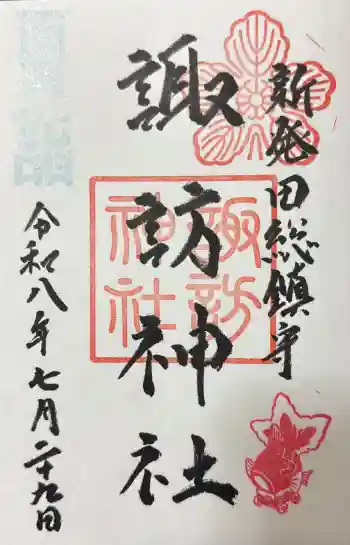 新発田総鎮守
諏訪神社
諏訪神社
令和八年七月二十九日